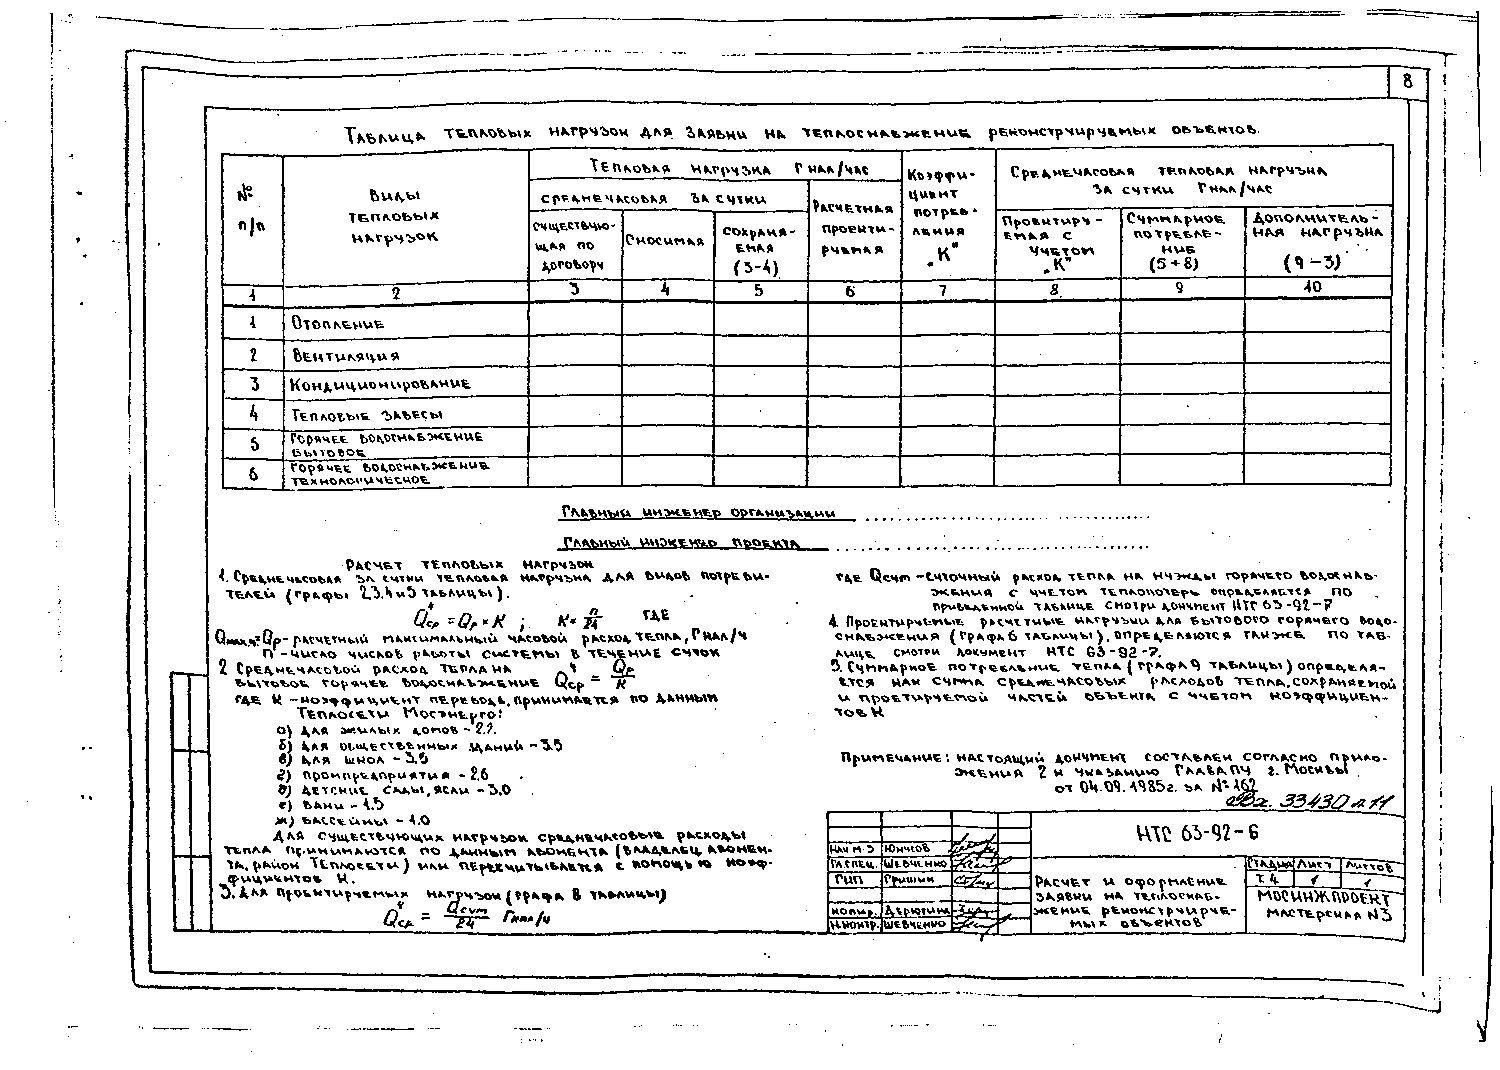 8
Таблица тепловых нагрузок для заявки на теплоснабжение реконструируемых объектов.
№ п/п
Виды тепловых нагрузок
Тепловая нагрузка Гкал/час
среднечасовая за сутки
существующая по договору
сносимая
сохраняемая (3-4)
Расчетная проектируемая
Коэффициент потребления „К"
Среднечасовая тепловая нагрузка за сутки Гкал/час
Проектируемая с учетом „К"
Суммарное потребление (5+8)
Дополнительная нагрузка (9-3)
1 2 3 4 5 6 7 8 9 10
1 Отопление
2 Вентиляция
3 Кондиционирование
4 Тепловые завесы
5 Горячее водоснабжение бытовое
6 Горячее водоснабжение технологическое
Главный инженер организации
Главный инженер проекта
Расчет тепловых нагрузок
1. Среднечасовая за сутки тепловая нагрузка для видов потреби-
телей (графы 2,3,4 и 5 таблицы).
Qср^ч = Qр × К ; К = n/24 где
Qмах.ч = Qр - расчетный максимальный часовой расход тепла, Гкал/ч
n - число числов работы системы в течение суток
2 Среднечасовой расход тепла на
бытовое горячее водоснабжение Qср^ч = Qр/К
где К - коэффициент перевода, принимается по данным
Теплосети Мосэнерго:
а) для жилых домов - 2.2.
б) для общественных зданий - 3.5
в) для школ - 3,5
г) промпредприятия - 2.6
д) детские сады, ясли - 3.0
е) бани - 1.5
ж) бассейны - 1.0
Для существующих нагрузок среднечасовые расходы
тепла принимаются по данным абонента (владелец абонен-
та, район Теплосети) или пересчитывается с помощью коэф-
фициентов К.
3. Для проектируемых нагрузок (графа 8 таблицы)
Qср^ч = Qсут/24 Гкал/ч
где Qсут - суточный расход тепла на нужды горячего водоснаб-
жения с учетом теплопотерь определяется по
приведенной таблице смотри документ НТС 63-92-7
4. Проектируемые расчетные нагрузки для бытового горячего водо-
снабжения (графа 6 таблицы), определяются также по таб-
лице смотри документ НТС 63-92-7.
5. Суммарное потребление тепла (графа 9 таблицы) определя-
ется как сумма среднечасовых расходов тепла, сохраняемой
и проетируемой частей объекта с учетом коэффициен-
тов К
Примечание: настоящий документ составлен согласно прило-
жения 2 к указанию ГлавАПУ г. Москвы
от 04.09.1985г. за № 162
Вх. 33430 л 11
НТС 63-92-6
Нач м-3 Юнусов
Гл.спец. Шевченко
ГИП Гришин
Копир. Дерюгина
Н.контр. Шевченко
Расчет и оформление
заявки на теплоснаб-
жение реконструируе-
мых объектов
Стадия Лист Листов
Т.Ч 1 1
МОСИНЖПРОЕКТ
мастерская №3